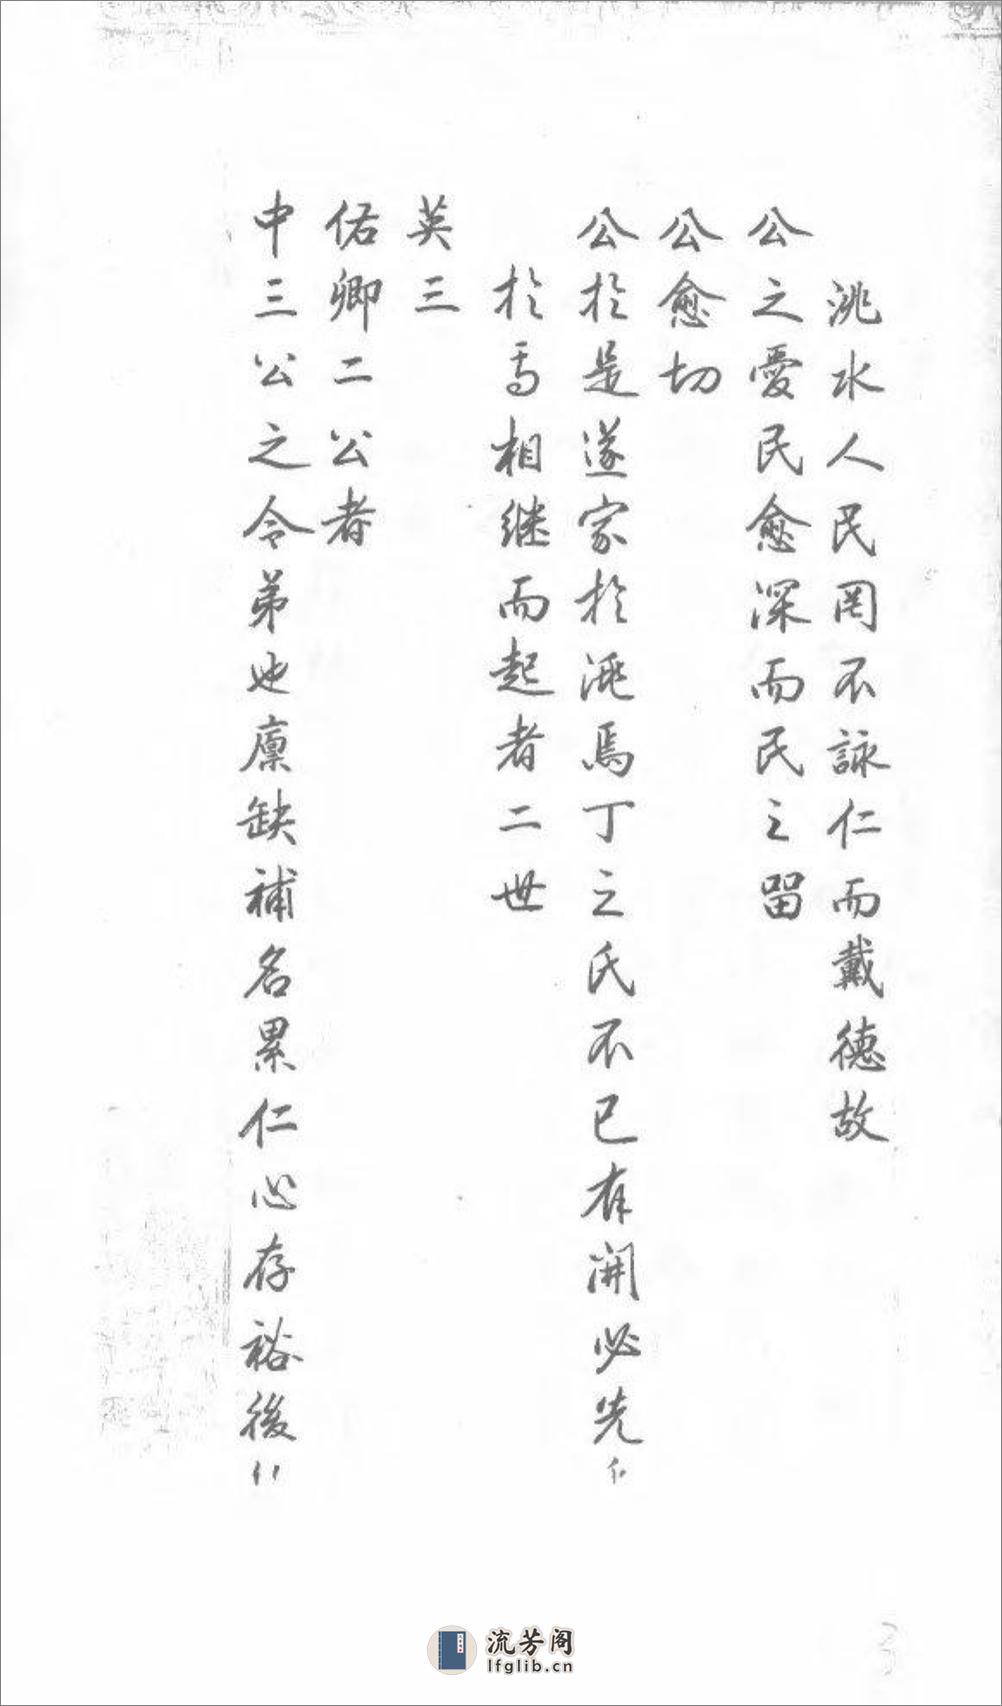 洮水人民罔不詠仁而戴德故
公之愛民愈深而民之留
公愈切
公於是遂家於洮焉丁之氏不已有開必先
於焉相继而起者二世
英三
佑卿二公者
中三公之令弟也廩缺補名累仁心存裕後
流芳阁
lfglib.cn